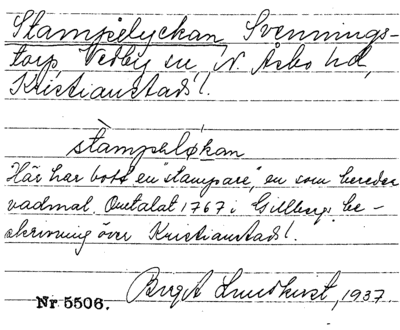 Stampelyckan, Svennings-
torp, Vedby sn, N. Åsbo hd,
Kristianstads l.
stàmpeløkan
Här har bott en "stampare", en som bereder
vadmal. Omtalat 1767 i Gillbergs be-
skrivning över Kristianstads l.
Birgit Lundkvist, 1937.
Nr 5506.